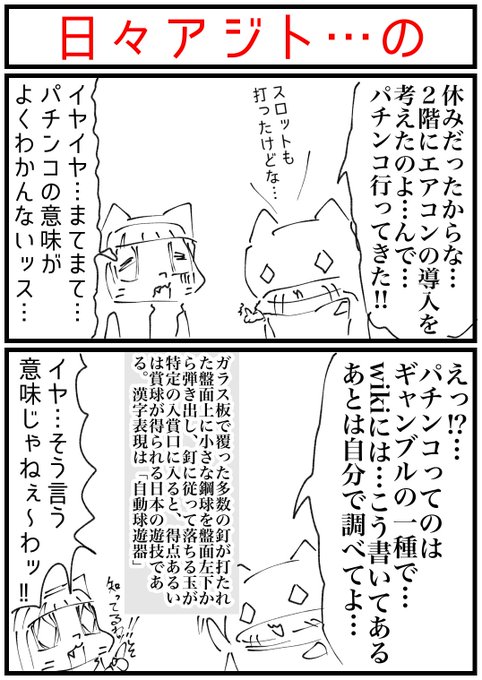 日々アジト…の
休みだったからな…
2階にエアコンの導入を
考えたのよ…んで…
パチンコ行ってきた!!
スロットも
打ったけどな…
イヤイヤ…まてまて…
パチンコの意味が
よくわかんないッス…
えっ!?…
パチンコってのは
ギャンブルの一種で…
wikiには…こう書いてある
あとは自分で調べてよ…
ガラス板で覆った多数の釘が打たれ
た盤面上に小さな鋼球を盤面左下か
ら弾き出し、釘に従って落ちる玉が
特定の入賞口に入ると、得点あるい
は賞球が得られる日本の遊技であ
る。漢字表現は「自動球遊器」
イヤ…そう言う
意味じゃねぇ〜わッ!!
知ってるわ!!